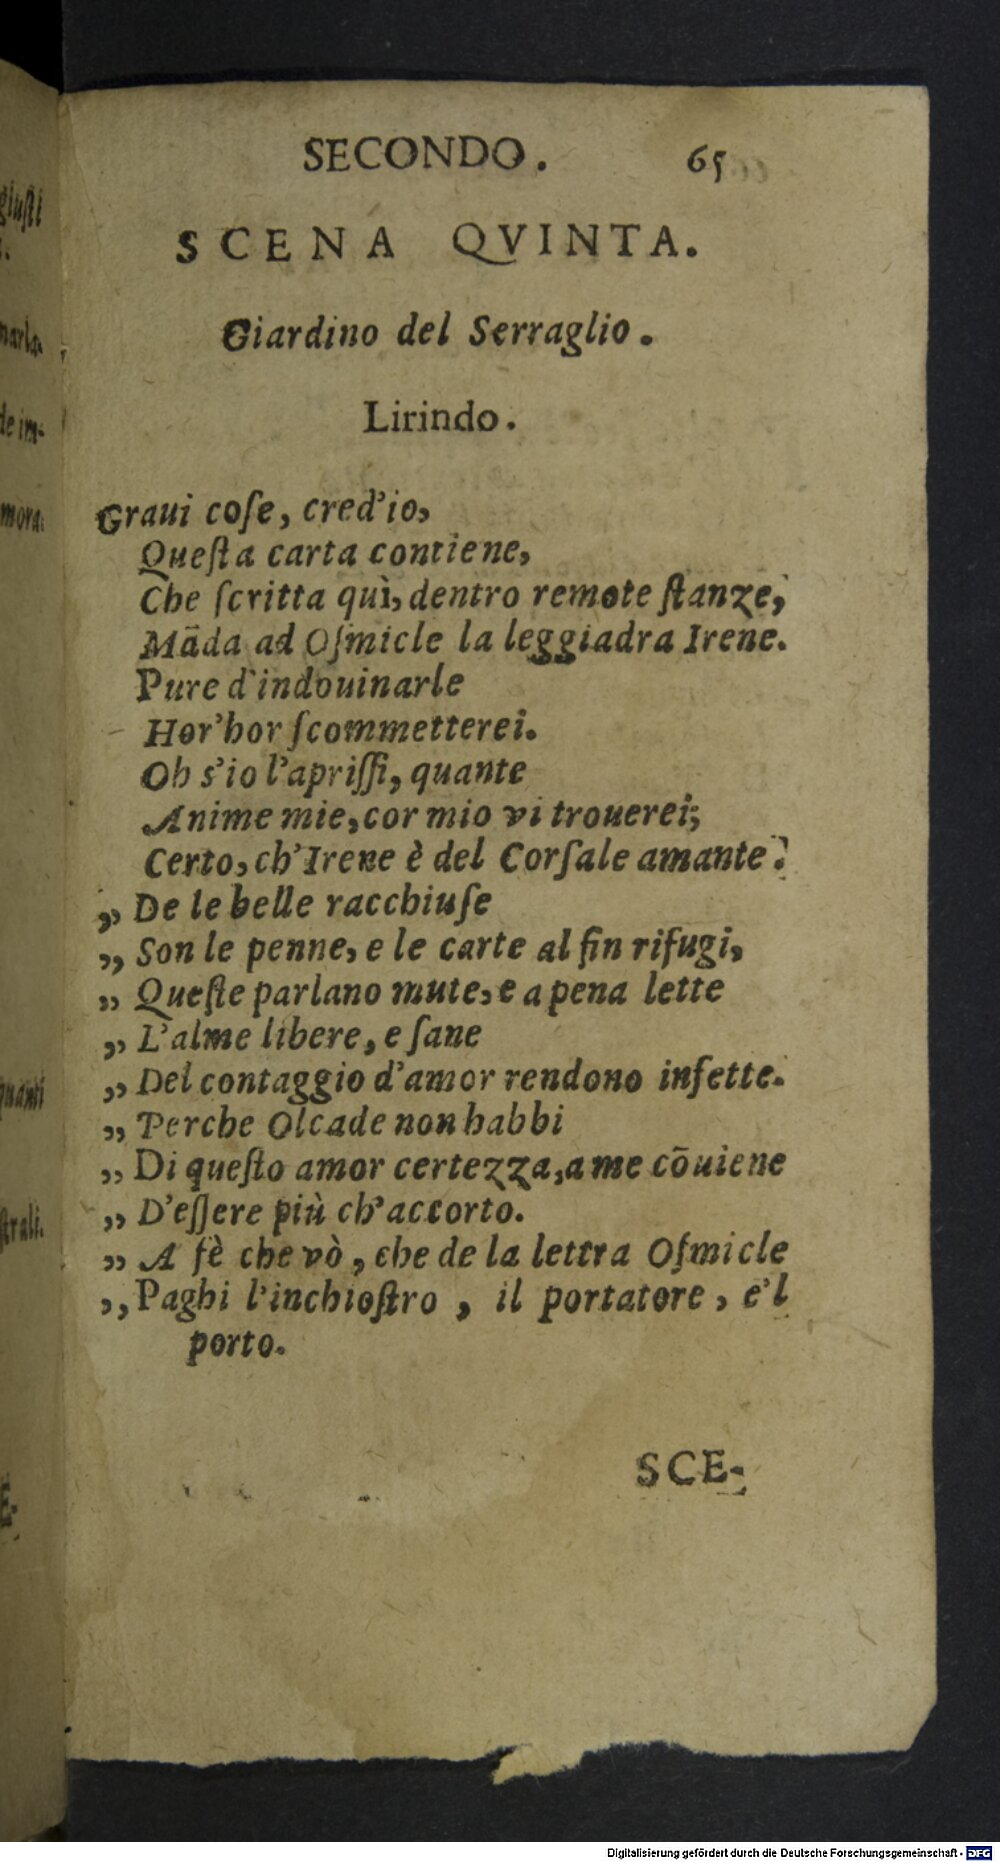 SECONDO. 65
SCENA QVINTA.
Giardino del Serraglio.
Lirindo.
Graui coſe, cred'io,
Queſta carta contiene,
Che ſcritta quì, dentro remote ſtanze,
Mãda ad Oſmicle la leggiadra Irene.
Pure d'indouinarle
Hor'hor ſcommetterei.
Oh s'io l'apriſſi, quante
Anime mie, cor mio vi trouerei;
Certo, ch'Irene è del Corſale amante.
„ De le belle racchiuſe
„ Son le penne, e le carte al fin rifugi,
„ Queſte parlano mute, e a pena lette
„ L'alme libere, e ſane
„ Del contaggio d'amor rendono infette.
„ Perche Olcade non habbi
„ Di queſto amor certezza, a me cõuiene
„ D'eſſere più ch'accorto.
„ A fè che vò, che de la lettra Oſmicle
„ Paghi l'inchioſtro, il portatore, e'l
porto.
SCE-
giuſti
narla.
de im-
mora.
quanti
ſtrali.
E-
Digitalisierung gefördert durch die Deutsche Forschungsgemeinschaft - DFG